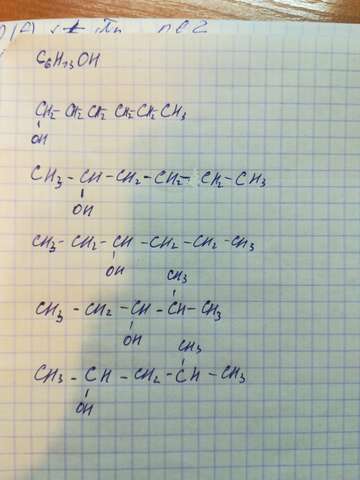 C6H13OH
CH2- CH2 CH2 CH2-CH2 CH3
OH
CH3 - CH - CH2 - CH2 - CH2 - CH3
OH
CH3 - CH2 - CH - CH2 - CH2 - CH3
OH
CH3
CH3 - CH2 - CH - CH - CH3
OH
CH3
CH3 - CH - CH2 - CH - CH3
OH